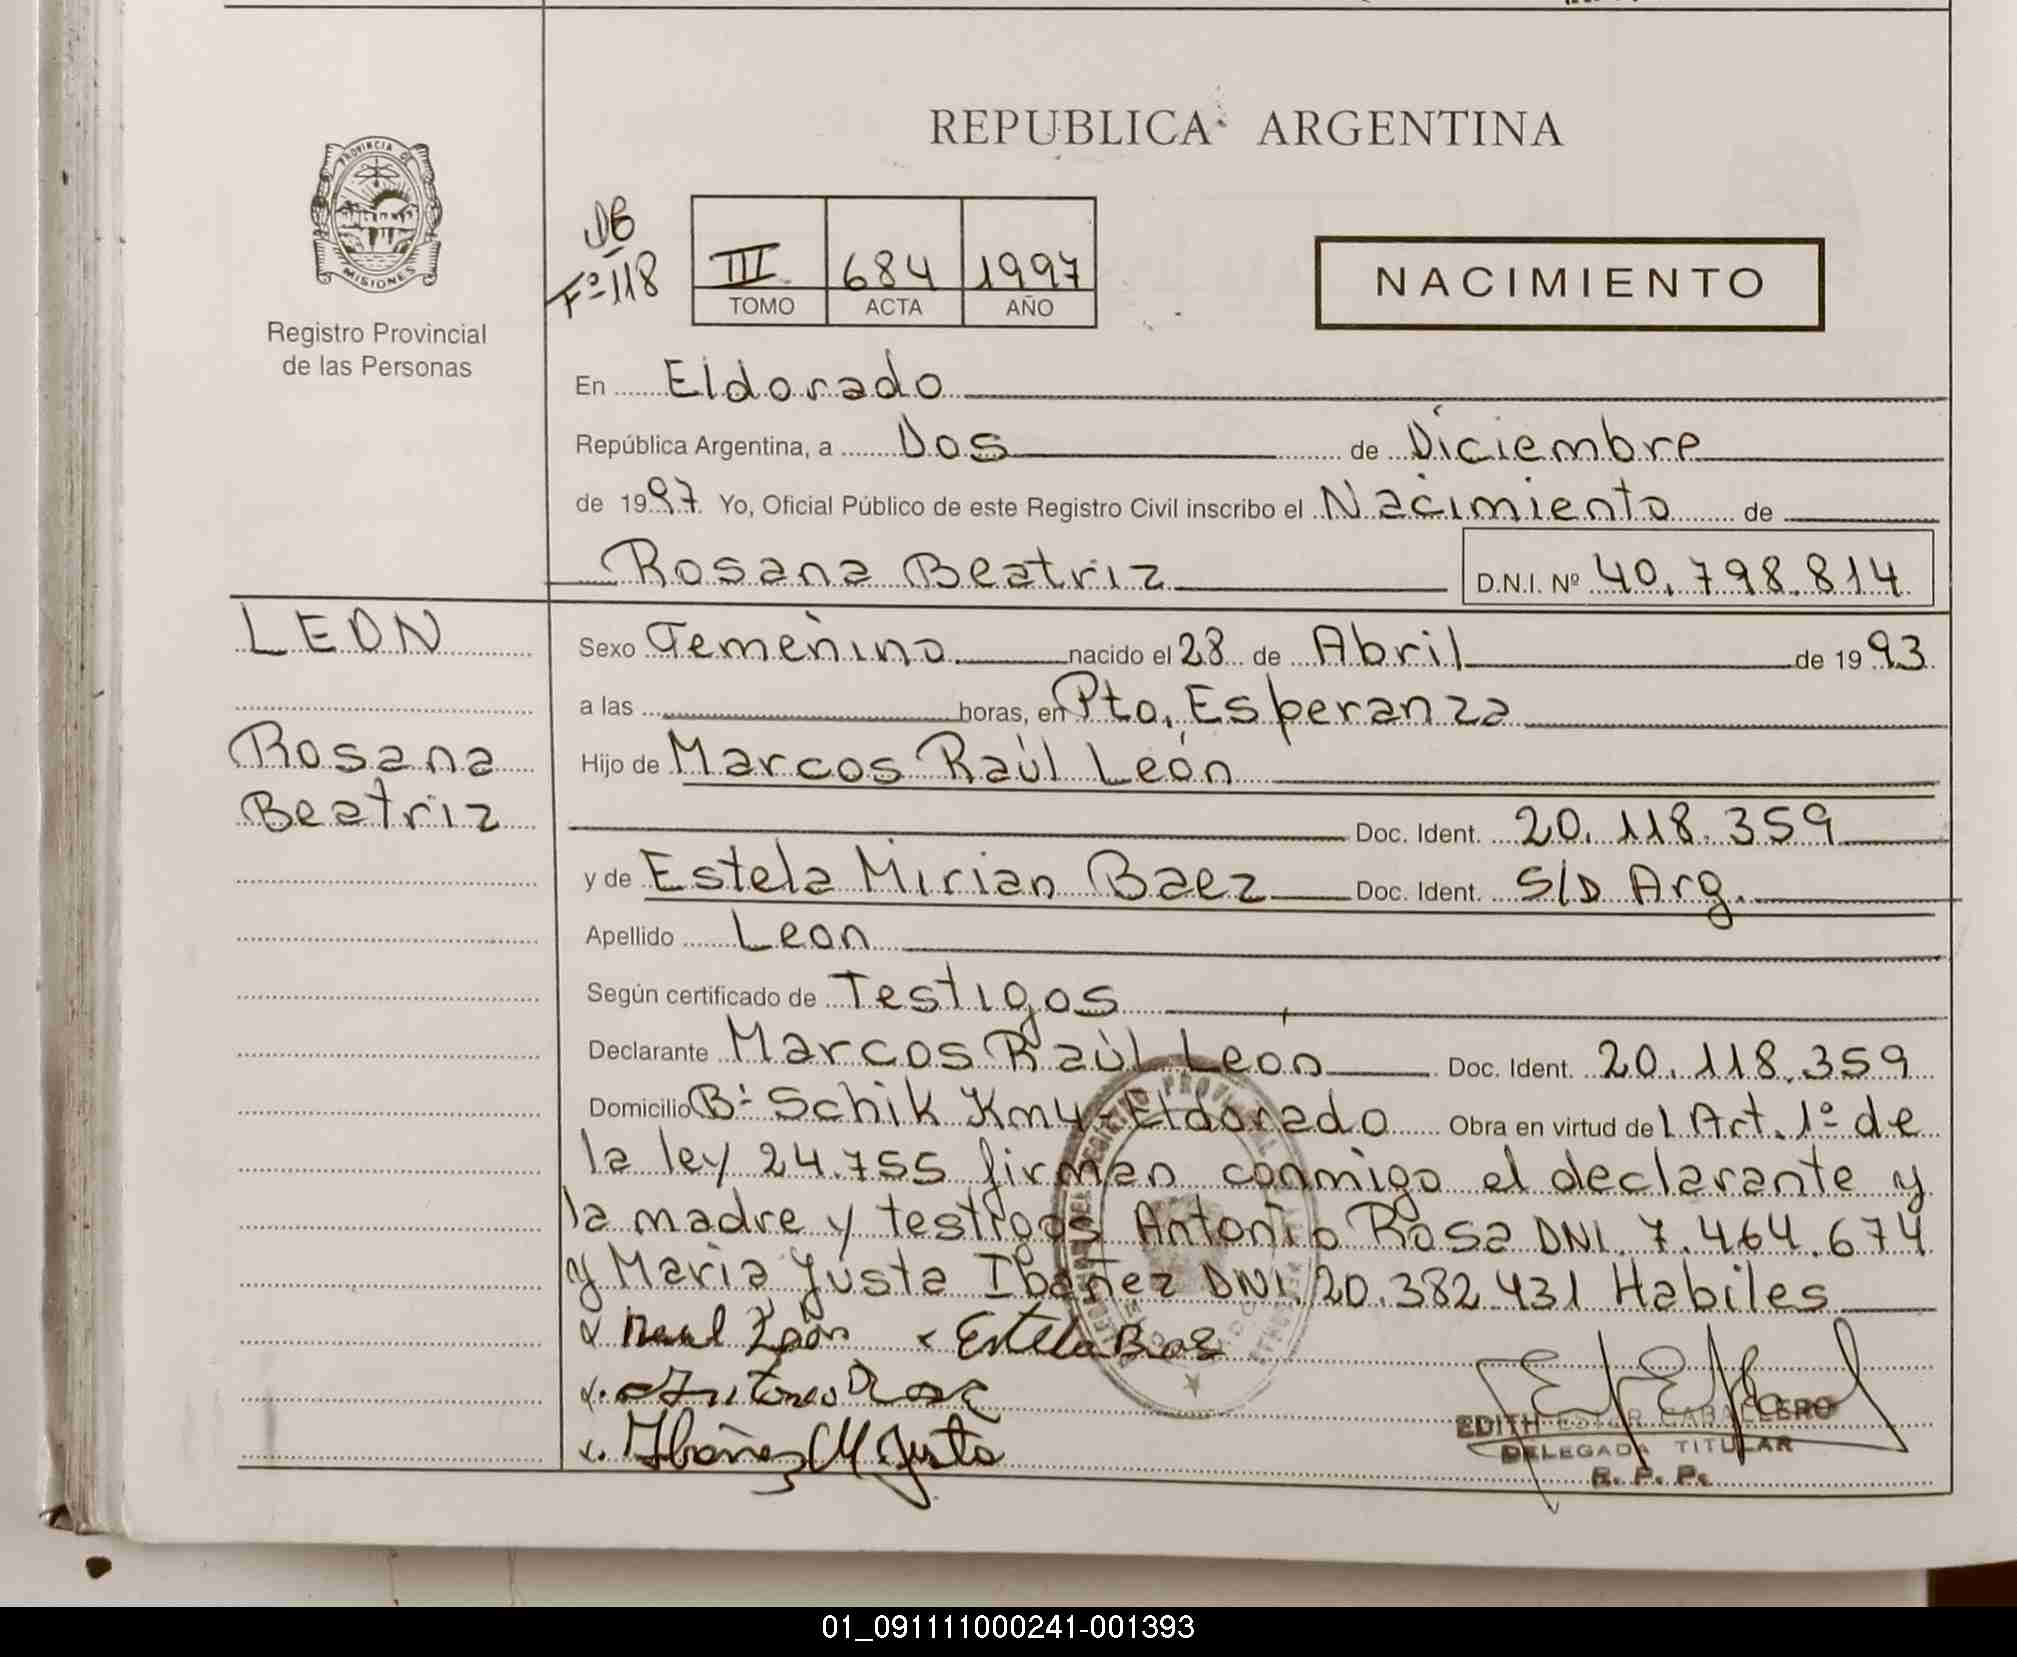 REPUBLICA ARGENTINA
PROVINCIA DE
MISIONES
Registro Provincial
de las Personas
Fº 118
III 684 1997
TOMO ACTA AÑO
NACIMIENTO
En Eldorado
República Argentina, a Dos de Diciembre
de 1997 Yo, Oficial Público de este Registro Civil inscribo el Nacimiento de
Rosana Beatriz D.N.I. Nº 40.798.814
LEON
Rosana
Beatriz
Sexo Femenino nacido el 28 de Abril de 1993
a las horas, en Pto. Esperanza
Hijo de Marcos Raúl León
Doc. Ident. 20.118.359
y de Estela Mirian Baez Doc. Ident. S/D Arg.
Apellido Leon
Según certificado de Testigos
Declarante Marcos Raúl Leon Doc. Ident. 20.118.359
Domicilio Bº Schik Km 4 - Eldorado Obra en virtud del Art. 1º de
la ley 24.755 firman conmigo el declarante y
la madre y testigos Antonio Rosa DNI. 7.464.674
y Maria Justa Ibañez DNI. 20.382.431 Habiles
x Raul León x Estela Baez
x. Antonio Rosa
x. Ibañez M Justa
EDITH ESTER CABALLERO
DELEGADA TITULAR
R. P. P.
01_091111000241-001393